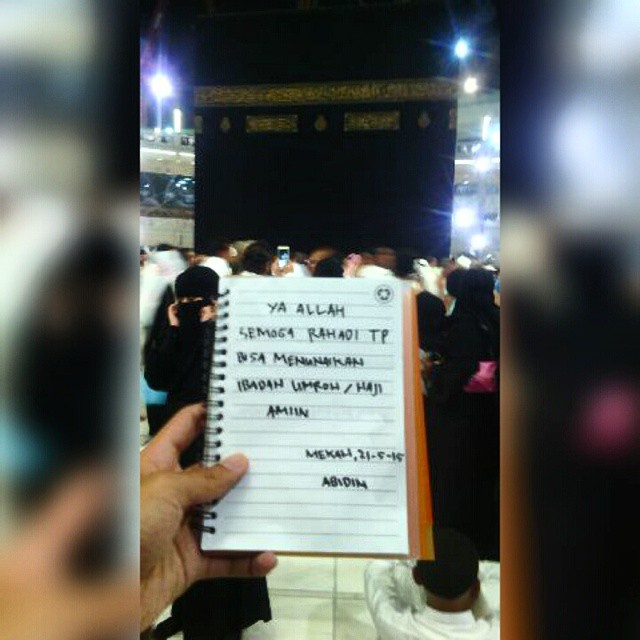 YA ALLAH
SEMOGA RAHADI TP
BISA MENUNAIKAN
IBADAH UMROH / HAJI
AMIIN
MEKAH, 21-5-15
ABIDIN